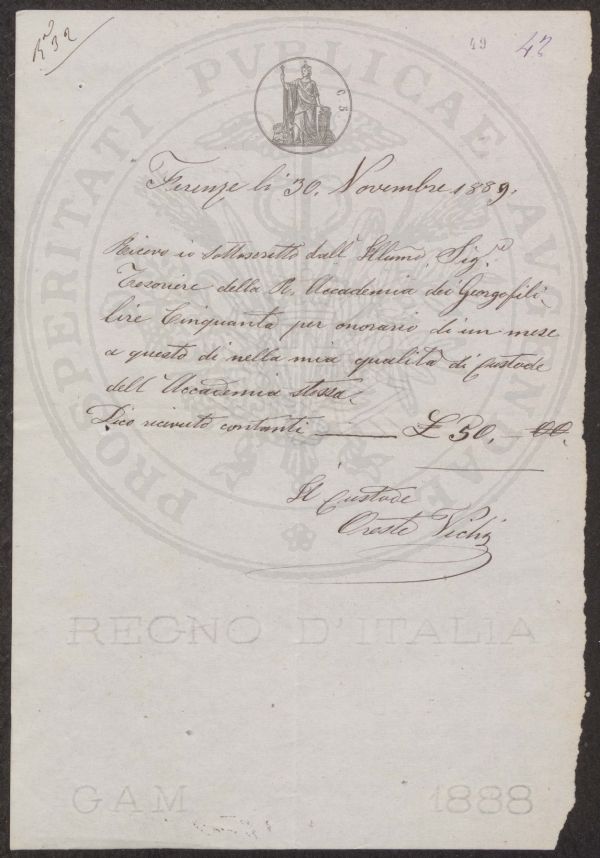 N° 32
49
42
C. 5.
PROSPERITATI PVBLICAE AVGENDAE
Firenze li 30. Novembre 1889.
Ricevo io sottoscritto dall' Illumo. Sigr.
Tesoriere della R. Accademia dei Georgofili
lire Cinquanta per onorario di un mese
a questo dì nella mia qualità di Custode
dell' Accademia stessa
Dico ricevuto contanti — £ 50. — 00.
Il Custode
Oreste Vichi
REGNO D'ITALIA
GAM 1888